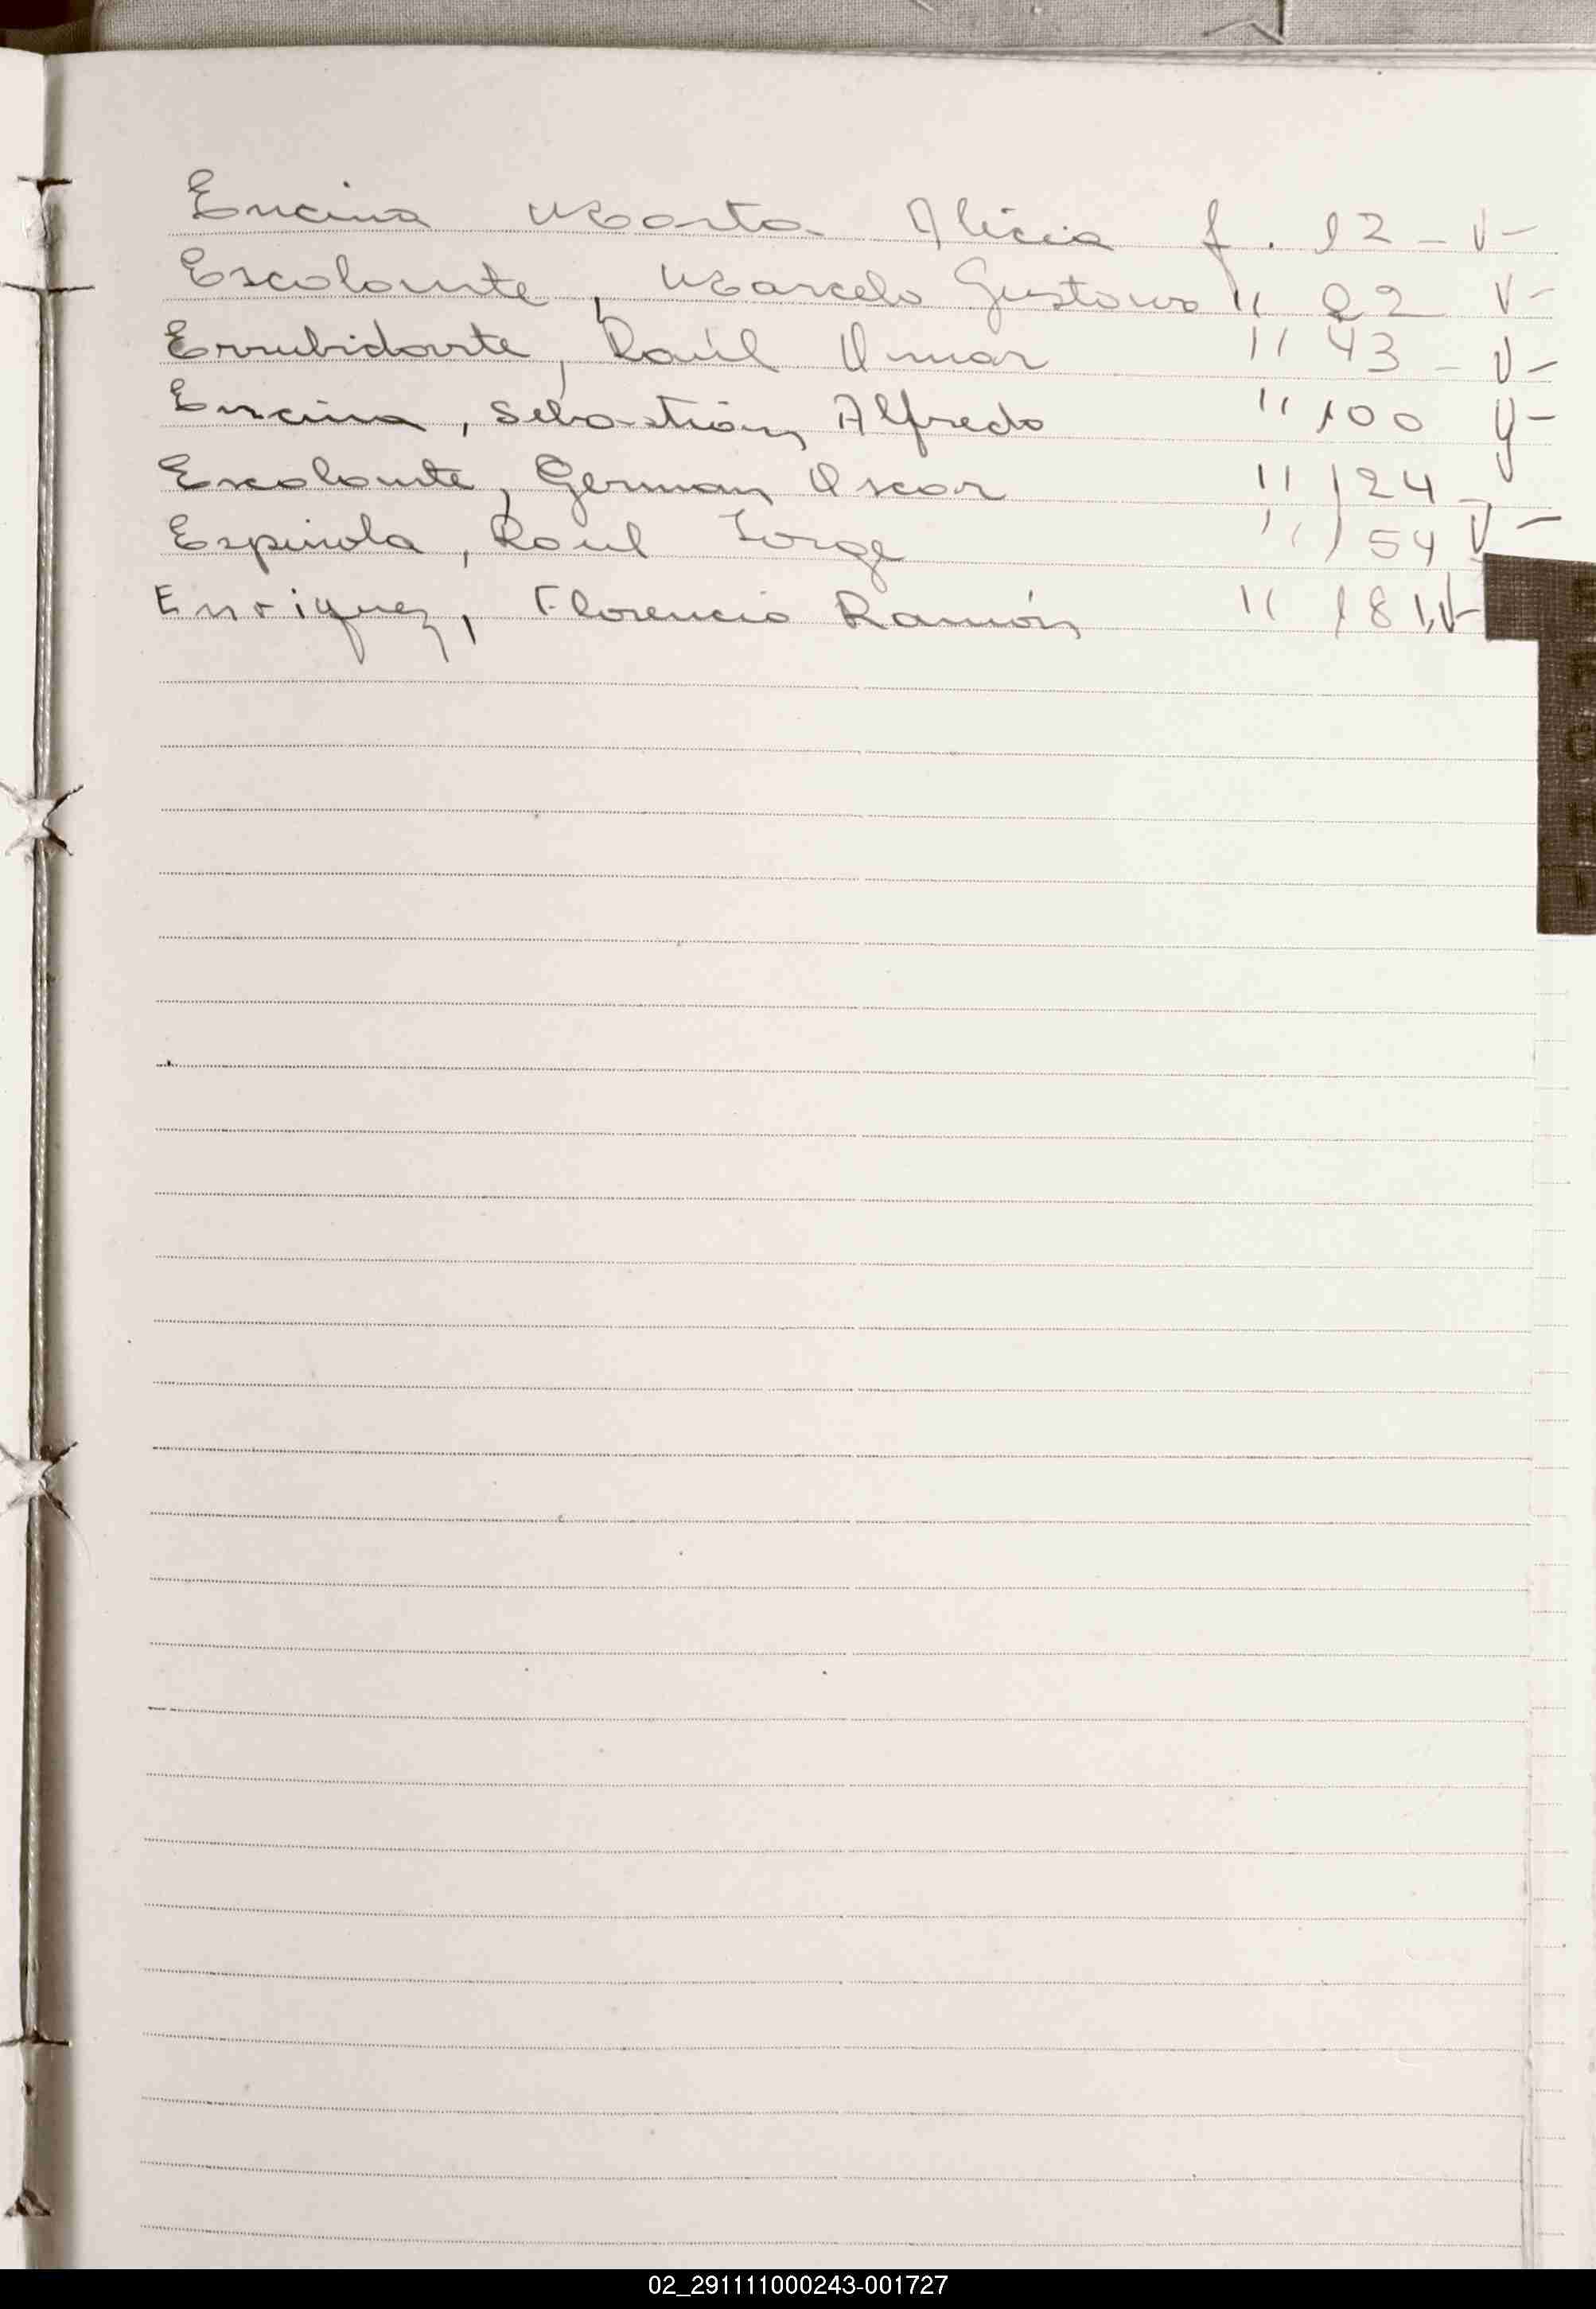 Encina Marta Alicia f. 12 - V -
Escalante, Marcelo Gustavo " 22 V -
Errubidarte, Raúl Omar " 43 - V -
Encina, Sebastián Alfredo " 100 V -
Escalante, German Oscar " 124 -
Espinola, Raul Jorge " 154 V -
Enriquez, Florencio Ramón " 181, V -
02_291111000243-001727